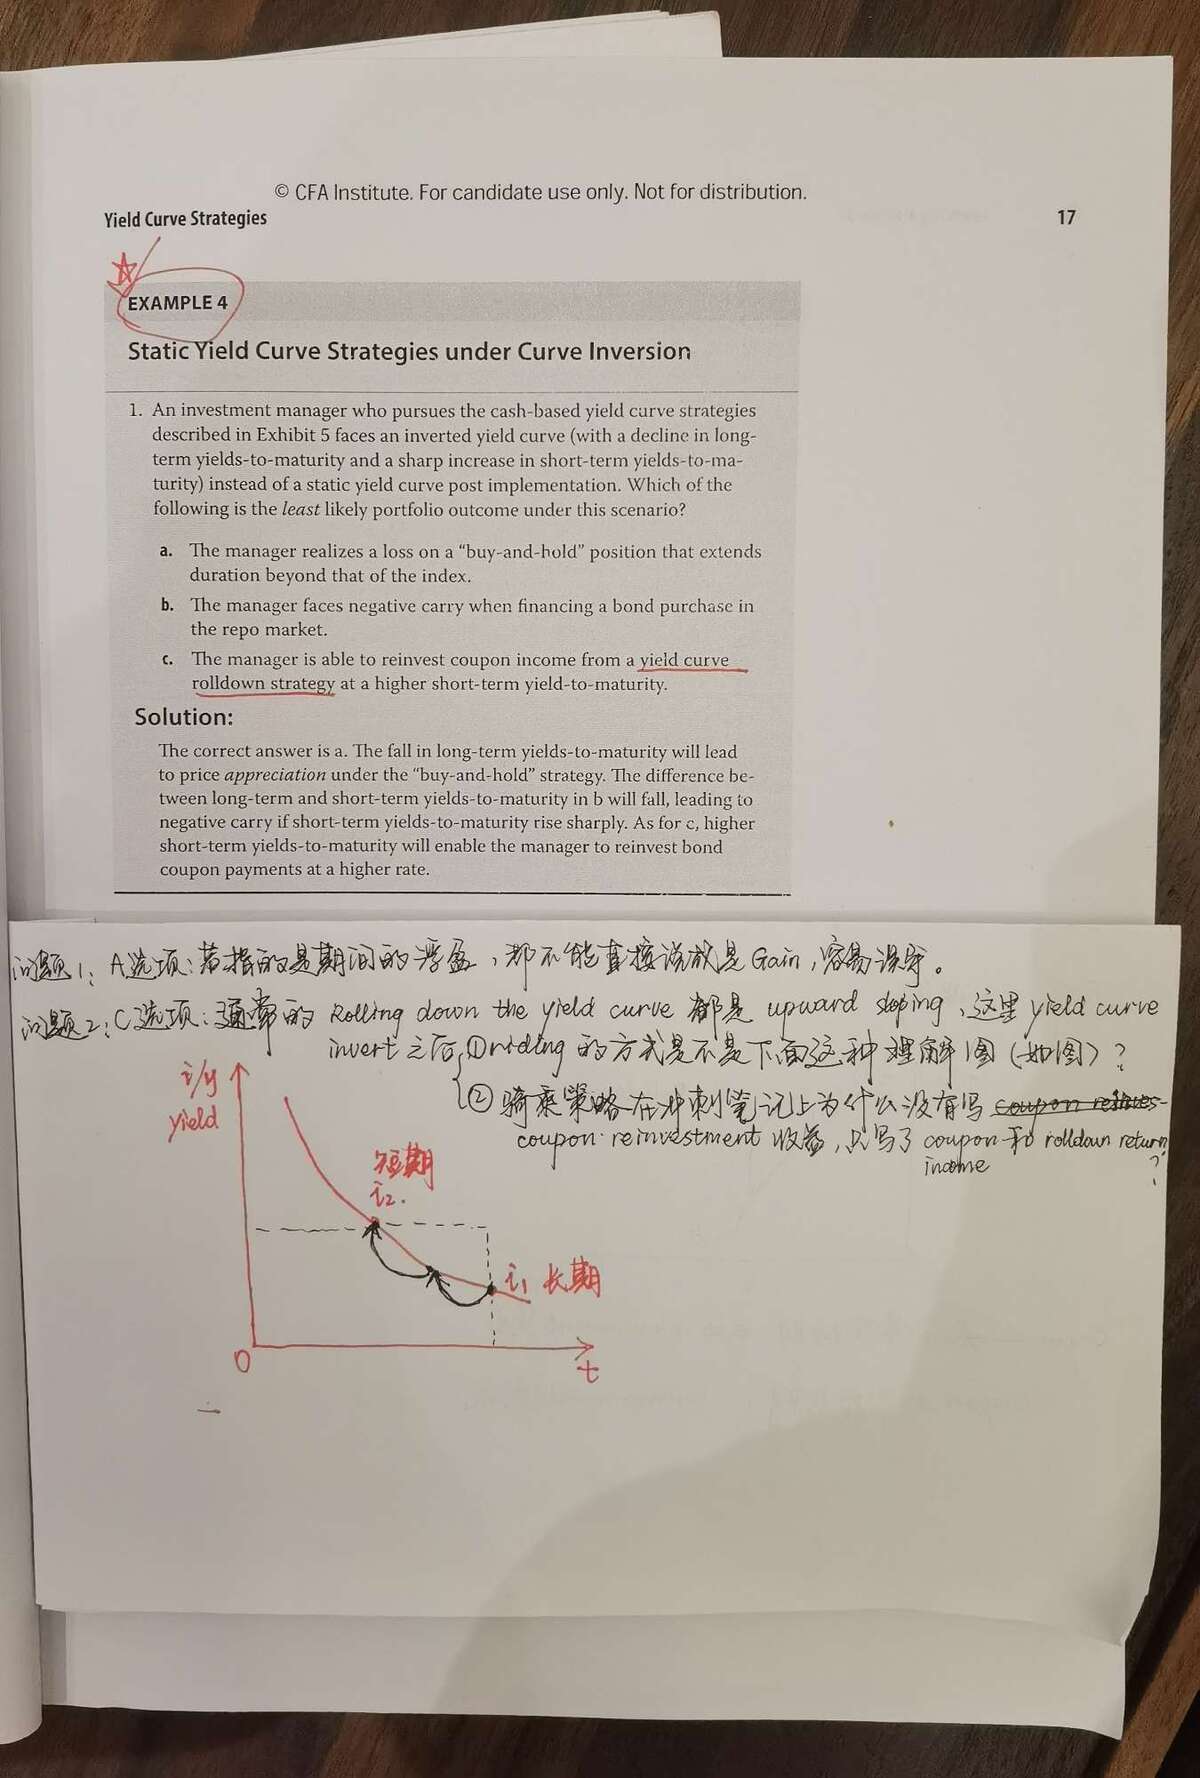 © CFA Institute. For candidate use only. Not for distribution.
Yield Curve Strategies 17
EXAMPLE 4
Static Yield Curve Strategies under Curve Inversion
1. An investment manager who pursues the cash-based yield curve strategies
described in Exhibit 5 faces an inverted yield curve (with a decline in long-
term yields-to-maturity and a sharp increase in short-term yields-to-ma-
turity) instead of a static yield curve post implementation. Which of the
following is the least likely portfolio outcome under this scenario?
a. The manager realizes a loss on a “buy-and-hold” position that extends
duration beyond that of the index.
b. The manager faces negative carry when financing a bond purchase in
the repo market.
c. The manager is able to reinvest coupon income from a yield curve
rolldown strategy at a higher short-term yield-to-maturity.
Solution:
The correct answer is a. The fall in long-term yields-to-maturity will lead
to price appreciation under the “buy-and-hold” strategy. The difference be-
tween long-term and short-term yields-to-maturity in b will fall, leading to
negative carry if short-term yields-to-maturity rise sharply. As for c, higher
short-term yields-to-maturity will enable the manager to reinvest bond
coupon payments at a higher rate.
问题1: A选项:若指的是期间的浮盈,都不能直接说成是Gain,容易误导。
问题2:C选项:通常的 Rolling down the yield curve 都是 upward sloping,这里 yield curve
invert 之后 ①riding 的方式是不是下面这种理解图(如图)?
②骑乘策略在冲刺笔记上为什么没有写 coupon reinves-
coupon reinvestment 收益,只写了 coupon 和 rolldown return
income ?
i/y
yield
短期
i2.
i1 长期
0
t